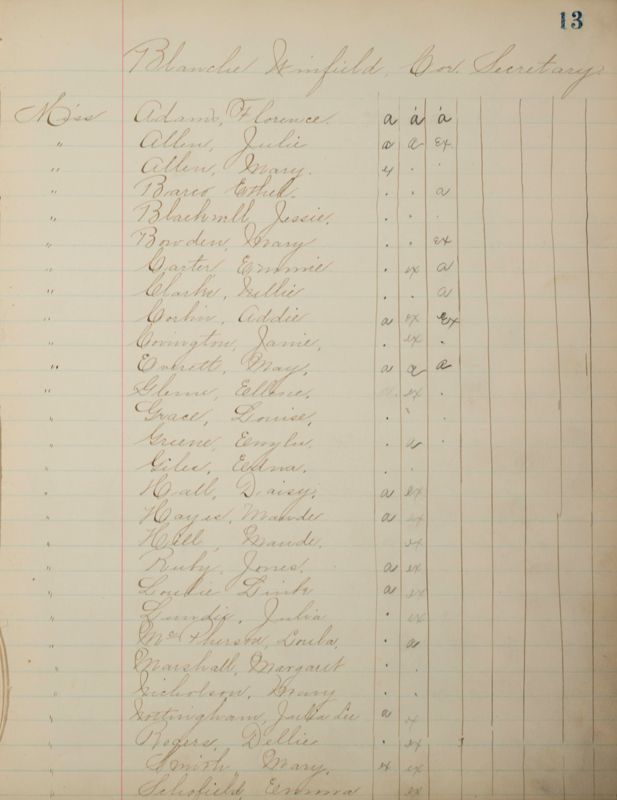 13
Blanche Winfield, Cor. Secretary.
Miss Adams, Florence. a a a
" Allen, Julie a a ex
" Allen, Mary. ex . .
" Barco Ethel. . . a
" Blackwell Jessie. . . .
" Bowden, Mary . . ex
" Carter Emmie . ex a
" Clarke, Nellie . . a
" Corbin, Addie a ex Ex
" Covington, Janie. . ex .
" Everett, May. a a a
" Glenn, Ellene. ex .
" Grace, Louise. .
" Greene, Emylu. . a .
" Giles, Edna. . .
" Hall, Daisy. a ex
" Hayes, Maude a ex
" Hill, Maude. ex
" Ruby, Jones. a ex
" Dink a ex
" Julia . ex
" Loula, . a
" Marshall, Margaret . .
" Nicholson, Mary . .
" Nottingham, Julia Lee a ex
" Rogers, Dellie . ex
" Smith, Mary. ex ex
" Schofield, Emma ex